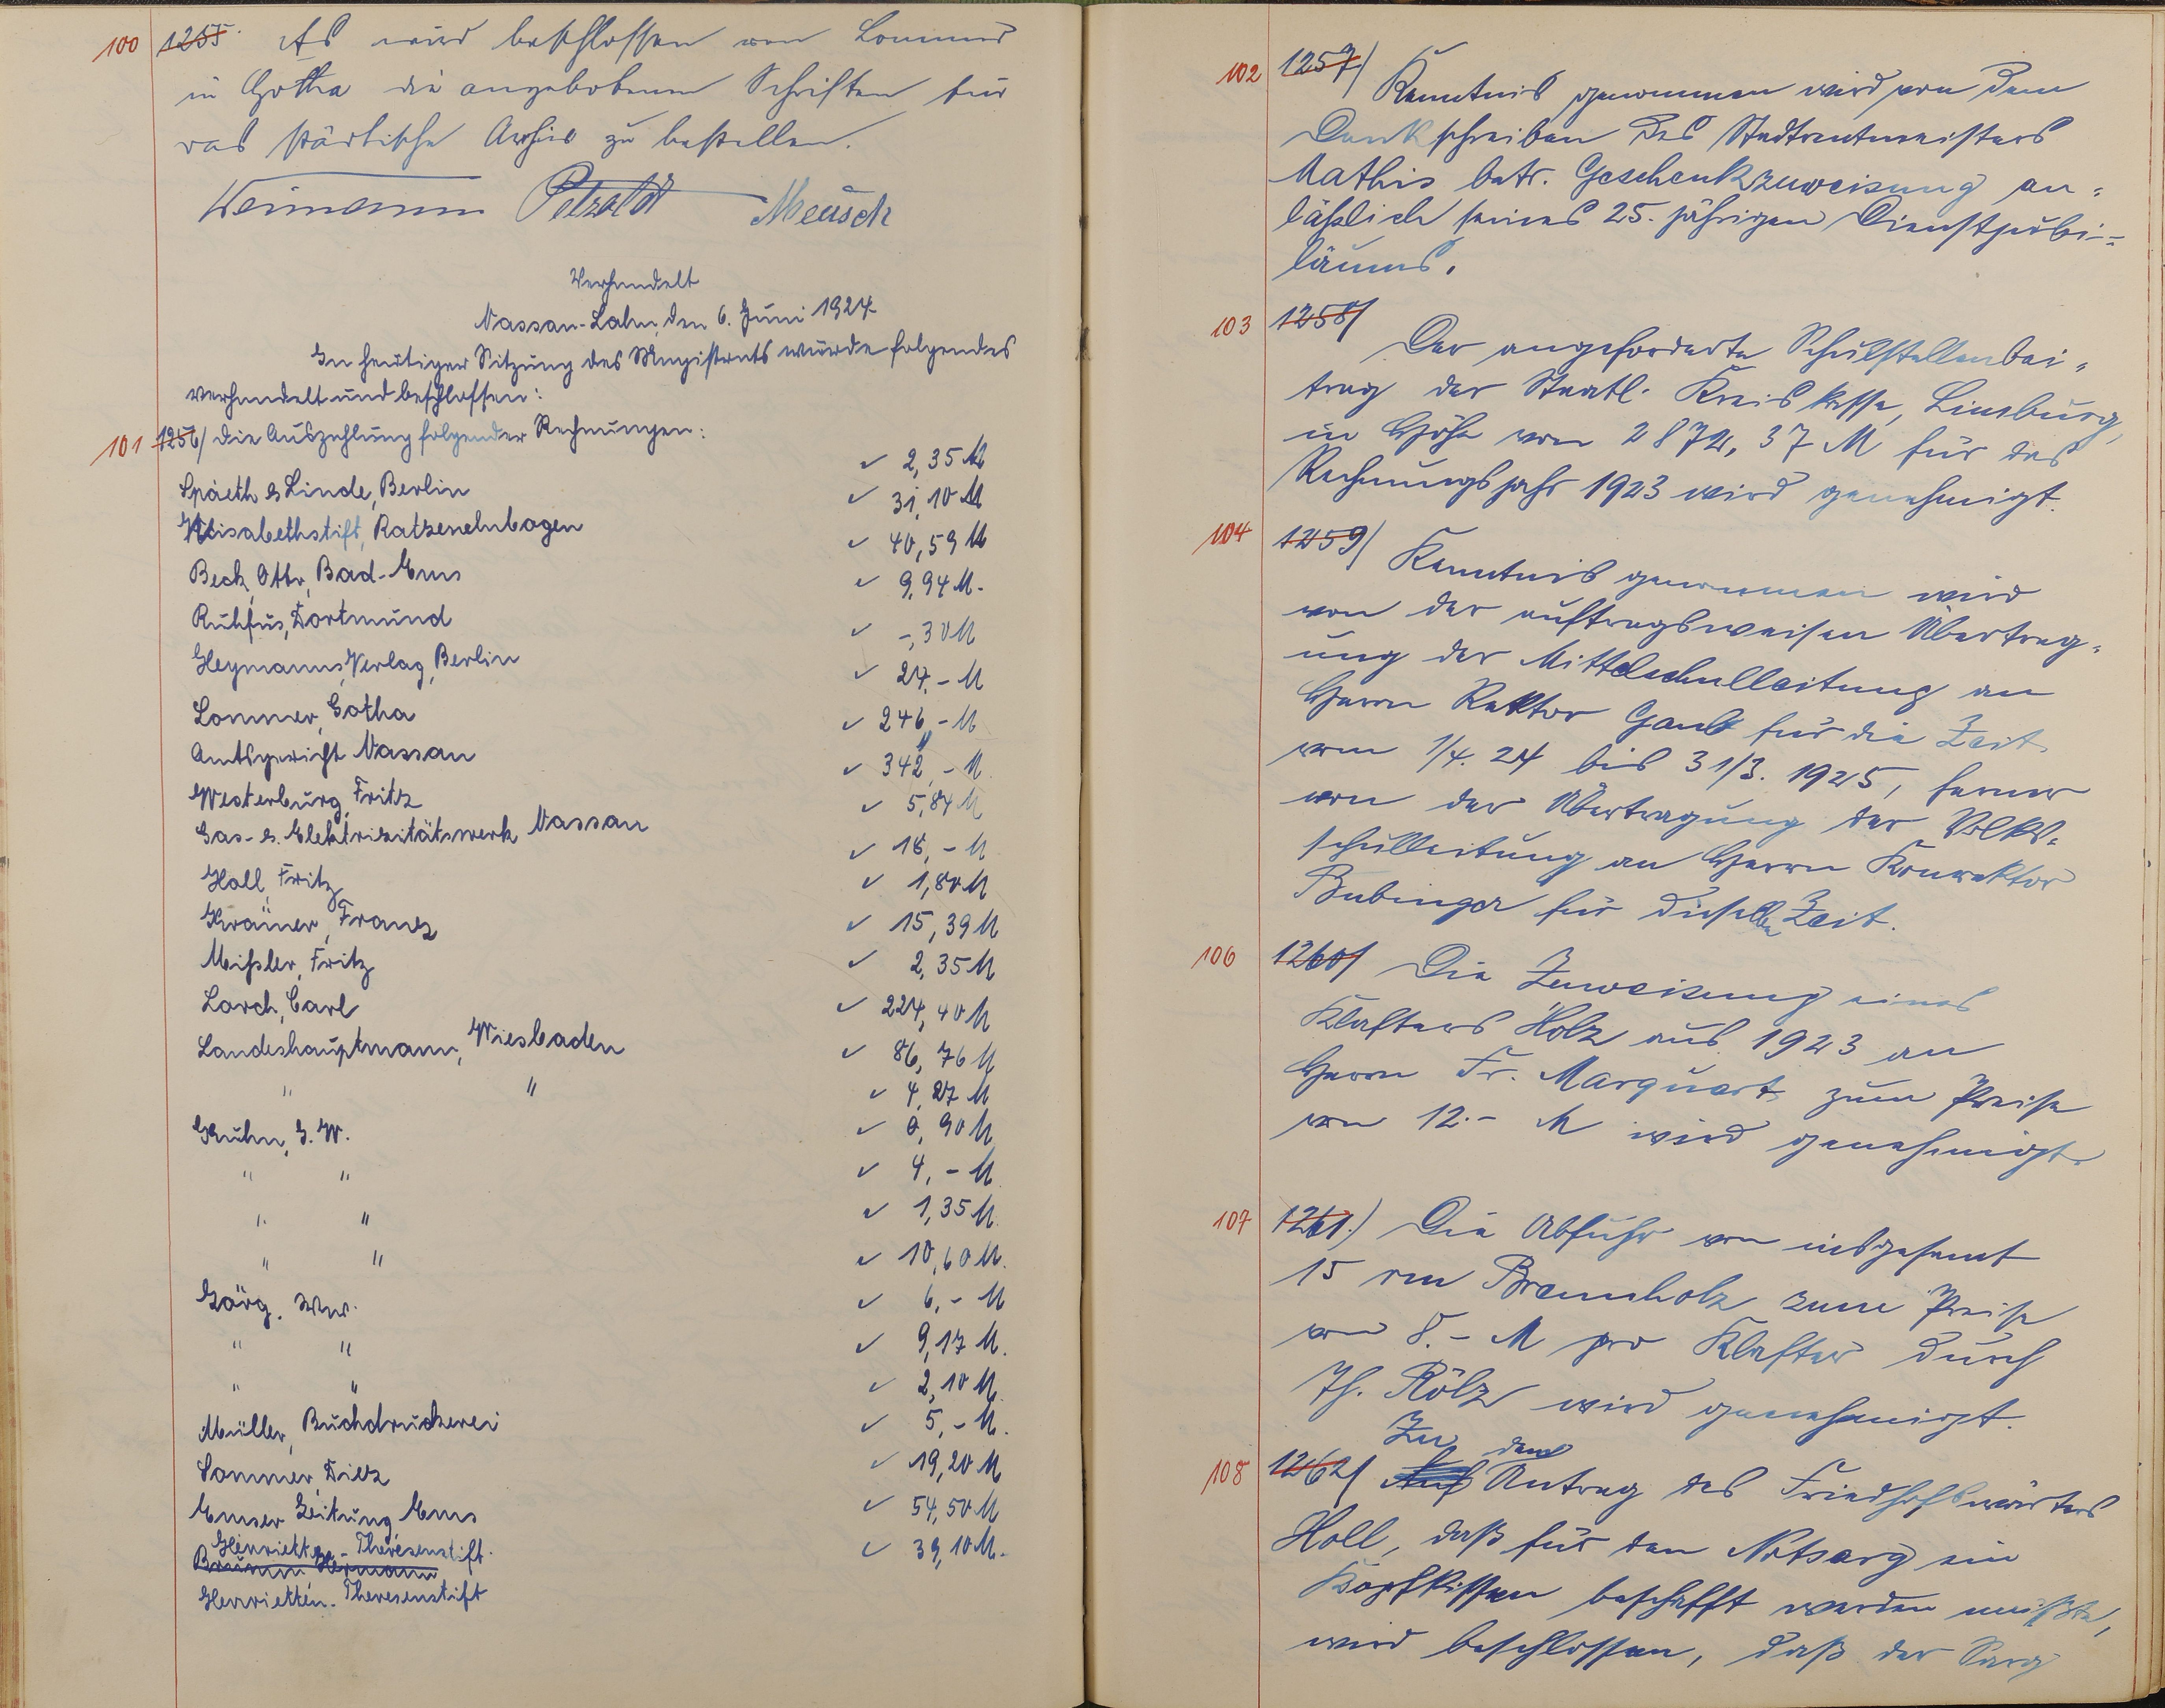 100 1255. Es wird beschlossen von Lommer
in Gotha die angebotenen Schriften für
das städtische Archiv zu bestellen.
Petzoldt Meusch
Verhandelt
Nassau-Lahn, den 6. Juni 1924
In heutiger Sitzung des Magistrats wurde folgendes
verhandelt und beschlossen:
101 1256/ Die Auszahlung folgender Rechnungen:
Spaeth & Linde, Berlin ✓ 2,35 M
Elisabethstift, Katzenelnbogen ✓ 31,10 M
Beck, Otto, Bad-Ems ✓ 40,59 M
Ruhfus, Dortmund ✓ 9,94 M.
Heymanns Verlag, Berlin ✓ -,30 M
Lommer, Gotha ✓ 27,- M
Amtsgericht Nassau ✓ 246,- M
Westerburg, Fritz ✓ 342,- M
Gas- & Elektrizitätswerk Nassau ✓ 5,84 M
Holl, Fritz ✓ 18,- M
Krämer, Franz ✓ 1,80 M
Mißler, Fritz ✓ 15,39 M
Lorch, Carl ✓ 2,35 M
Landeshauptmann, Wiesbaden ✓ 224,40 M
" " ✓ 86,76 M
Kuhn, G. W. ✓ 4,27 M
" " ✓ 0,90 M
" " ✓ 4,- M
" " ✓ 1,35 M
Görg. Ww. ✓ 10,60 M.
" " ✓ 6,- M
" " ✓ 9,17 M.
Müller, Buchdruckerei ✓ 2,10 M.
Sommer, Diez ✓ 5,- M.
Emser Zeitung, Ems ✓ 19,20 M
Henrietten-Theresenstift. ✓ 54,50 M
Brumm Hermann
Henrietten-Theresenstift ✓ 39,10 M.
102 1257/ Kenntnis genommen wird von dem
Dankschreiben des Stadtrentmeisters
Mathis betr. Geschenkzuweisung an-
läßlich seines 25. jährigen Dienstjubi-
läums.
103 1258/
Der angeforderte Schulstellenbei-
trag der Staatl. Kreiskasse, Limburg,
in Höhe von 2872,37 M für das
Rechnungsjahr 1923 wird genehmigt.
104 1259/ Kenntnis genommen wird
von der auftragsweisen Übertrag-
ung der Mittelschulleitung an
Herrn Rektor Gaul für die Zeit
vom 1/4. 24 bis 31/3. 1925, ferner
von der Übertragung der Volks-
schulleitung an Herrn Konrektor
Bubinger für dieselbe Zeit.
106 1260/ Die Zuweisung eines
Klafters Holz aus 1923 an
Herrn Fr. Marquart zum Preise
von 12.- M wird genehmigt.
107 1261.) Die Abfuhr von insgesamt
15 rm Brennholz zum Preise
von 8.- M pro Klafter durch
Th. Rölz wird genehmigt.
Zu dem
108 1262/ Auf Antrag des Friedhofswärters
Holl, daß für den Notsarg ein
Kopfkissen beschafft werden müßte,
wird beschlossen, daß der Sarg